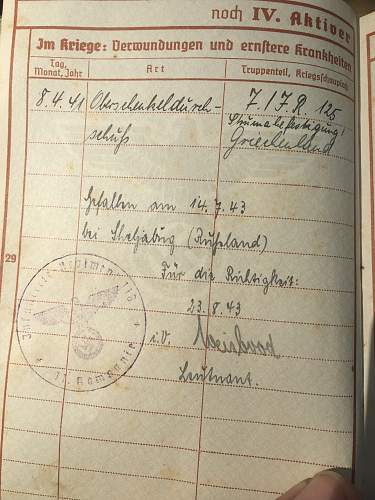 noch IV. Aktiver
Im Kriege: Verwundungen und ernstere Krankheiten
Tag, Monat, Jahr
Art
Truppenteil, Kriegsschauplatz
8.4.41 Oberschenkeldurch-
schuß
7./J.R. 125
Griechenland
Gefallen am 14.7.43
bei (Rußland)
29
Für die Richtigkeit:
23.8.43
i.V.
Leutnant.